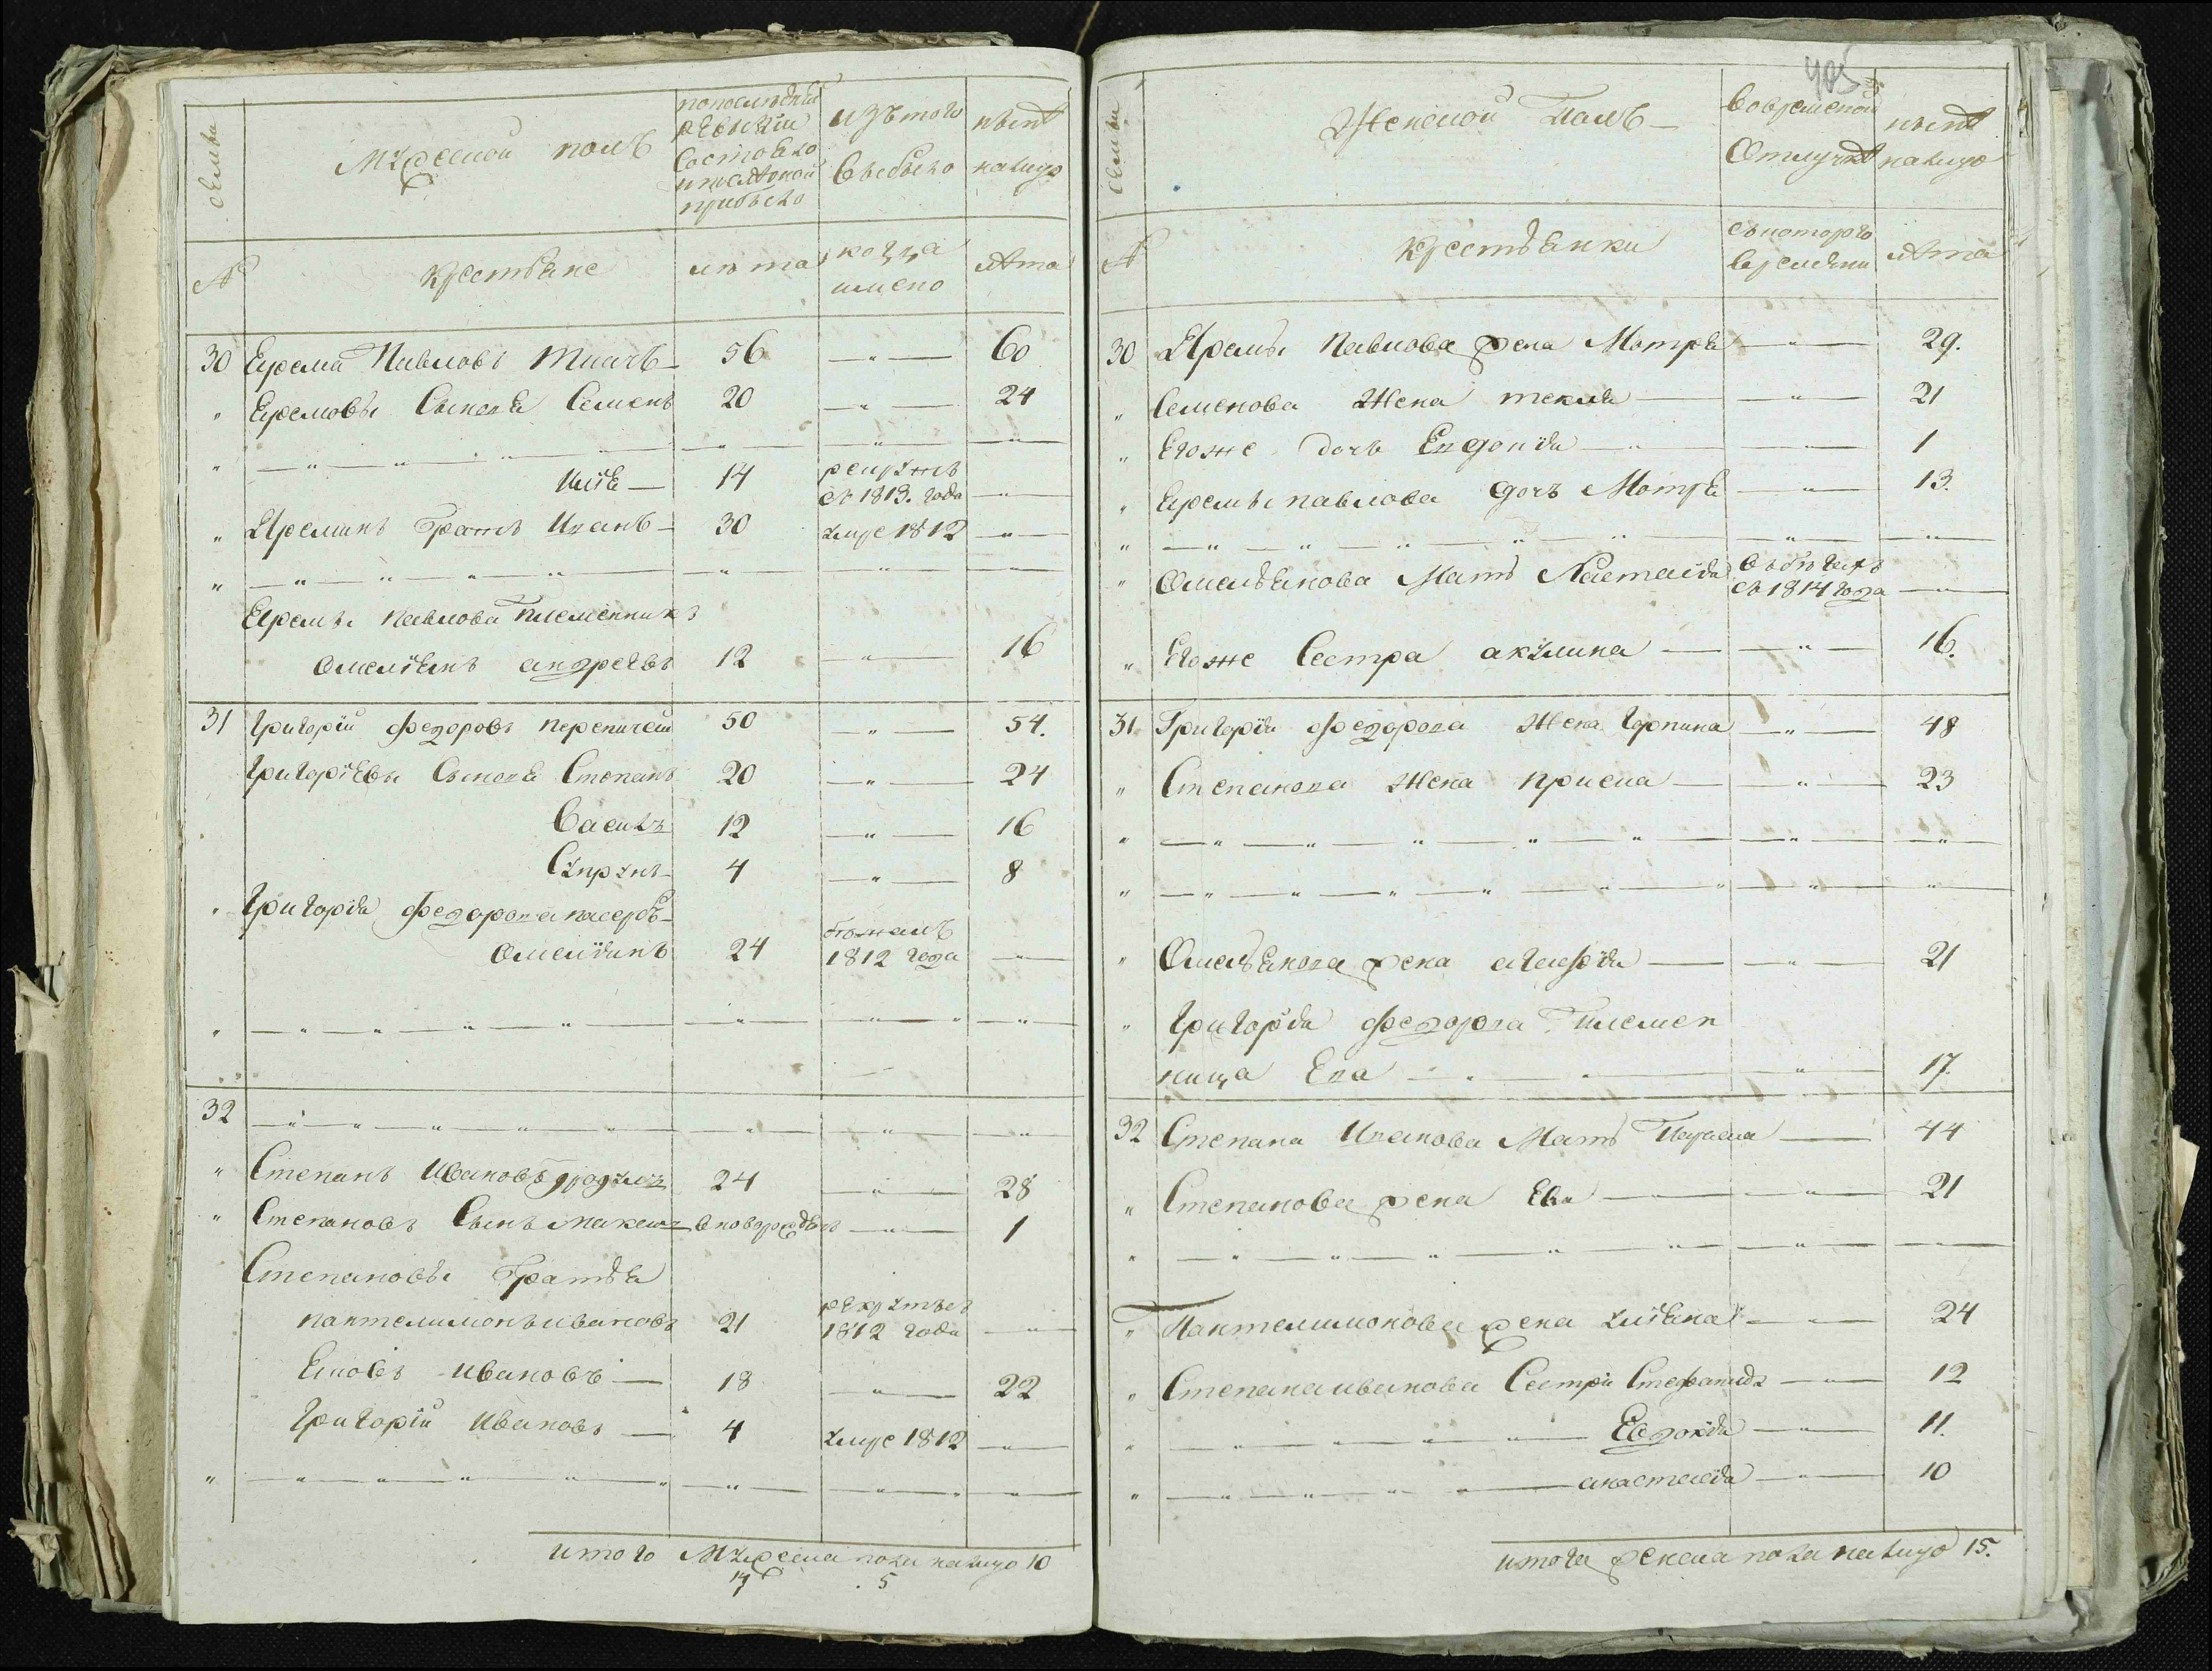 семьи
Мужеской полъ
попоследней
ревизии
состояло
и после оной
прибыло
изъ того
выбыло
ныне
налицо
№
Крестьяне
лета
когда
имено
лета
30 Ерема Павловъ Ткачъ 56 — " — 60
" Еремовы Сыновья Семенъ 20 — " — 24
" — " — " — " — " —
Илья — 14 рекрутъ
съ 1813. года — " —
" Еремин братъ Иванъ — 30 умре 1812 — " —
" — " — " — " — " —
Еремы Павлова племенникъ
Омелянъ андреевъ 12 — " — 16
31 Григорій Федоровъ перепичай 50 — " — 54.
Григоріевы Сыновья Степанъ 20 — " — 24
Василь 12 — " — 16
Супрунъ 4 — " — 8
" Григорія Федорова пасербъ
Омеліянъ 24 бежалъ
1812 года — " —
" — " — " — " — " —
32 — " — " — " — " — " —
" Степанъ Ивановъ 24 — " — 28
" Степановъ Сынъ Максимъ вноворожденъ — " — 1
Степановы братья
пантелимонъ ивановъ 21 рекрутъ
1812 года — " —
Яковъ Ивановъ — 18 — " — 22
Григорій Ивановъ — 4 умре 1812 — " —
" — " — " — " — " —
итого Мужеска пола налицо 10
17 . 5
405
семьи
Женской Полъ
вовременой
Отлучке
ныне
налицо
№
Крестьянки
скоторого
времени
лета
30 Еремы Павлова жена Мотря — " — 29.
" Семенова Жена текля — " — 21
" Егоже дочь Евдокія — " — 1
" Еремы павлова дочь Мотря — " — 13.
" — " — " — " — " —
" Омельянова Мать Настасія въ бегахъ
съ 1814 года — " —
" Егоже Сестра акулина — " — 16.
31 Григорія Федорова Жена Горпина — " — 48
" Степанова Жена приська — " — 23
" — " — " — " — " —
" — " — " — " — " —
" Омельянова жена агафія — " — 21
" Григорія Федорова племен
ница Ева — " — 17.
32 Степана Иванова Мать Параска — 44
" Степанова жена Ева — " — 21
" — " — " — " — " —
" Пантелимонова жена уліяна — " — 24
" Степана иванова Сестри Стефанида — " — 12
" — " — " — Евдокія — " — 11.
" — " — " — анастасія — " — 10
итога женска пола налицо 15.